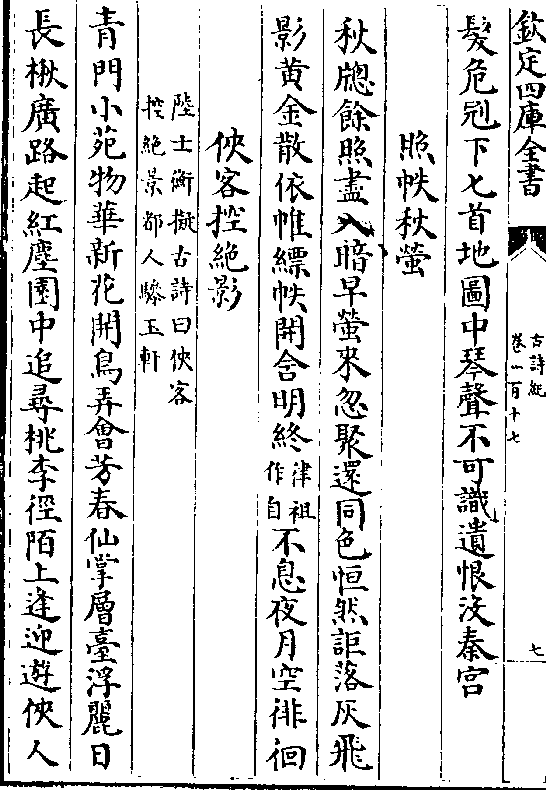 欽定四庫全書
古詩紀
卷一百十七
七
髮危冠下匕首地圖中琴聲不可識遺恨沒秦宮
照帙秋螢
秋牕餘照盡入暗早螢來忽聚還同色恒然詎落灰飛
影黄金散依帷縹帙開含明終律祖作自不息夜月空徘徊
俠客控絶影
陸士衡擬古詩曰俠客
控絶景都人驂玉軒
青門小苑物華新花開鳥弄會芳春仙掌層臺浮麗日
長楸廣路起紅塵園中追尋桃李徑陌上逢迎遊俠人